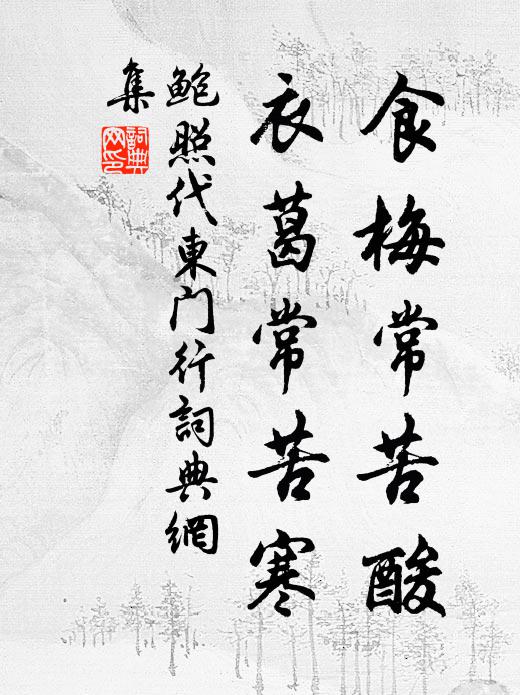 食梅常苦酸
衣葛常苦寒
鲍照代東门行詞典網
集
詞典网印